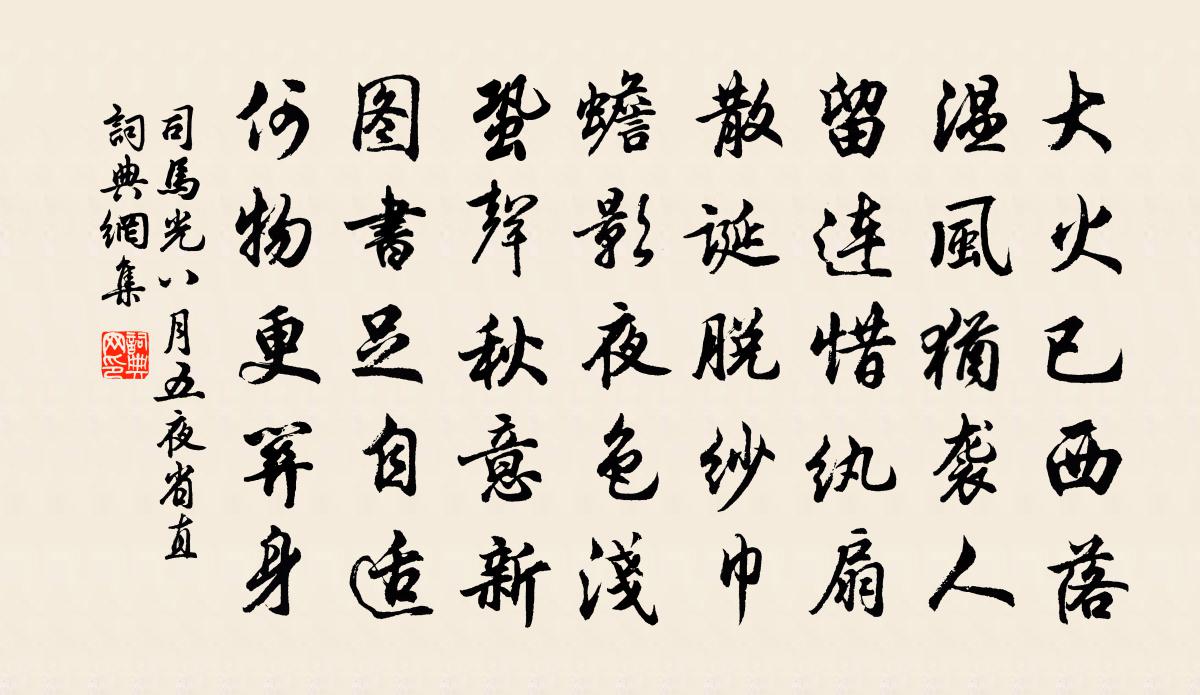 大火已西落
温風猶襲人
留連惜紈扇
散誕脱紗巾
蟾影夜色淺
蛩聲秋意新
图書足自适
何物更關身
司馬光八月五夜省直
詞典網集
詞典网印